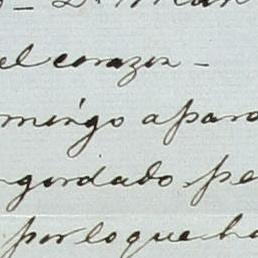 el corazon -
mingo a paro
gordado pe
por lo que ha